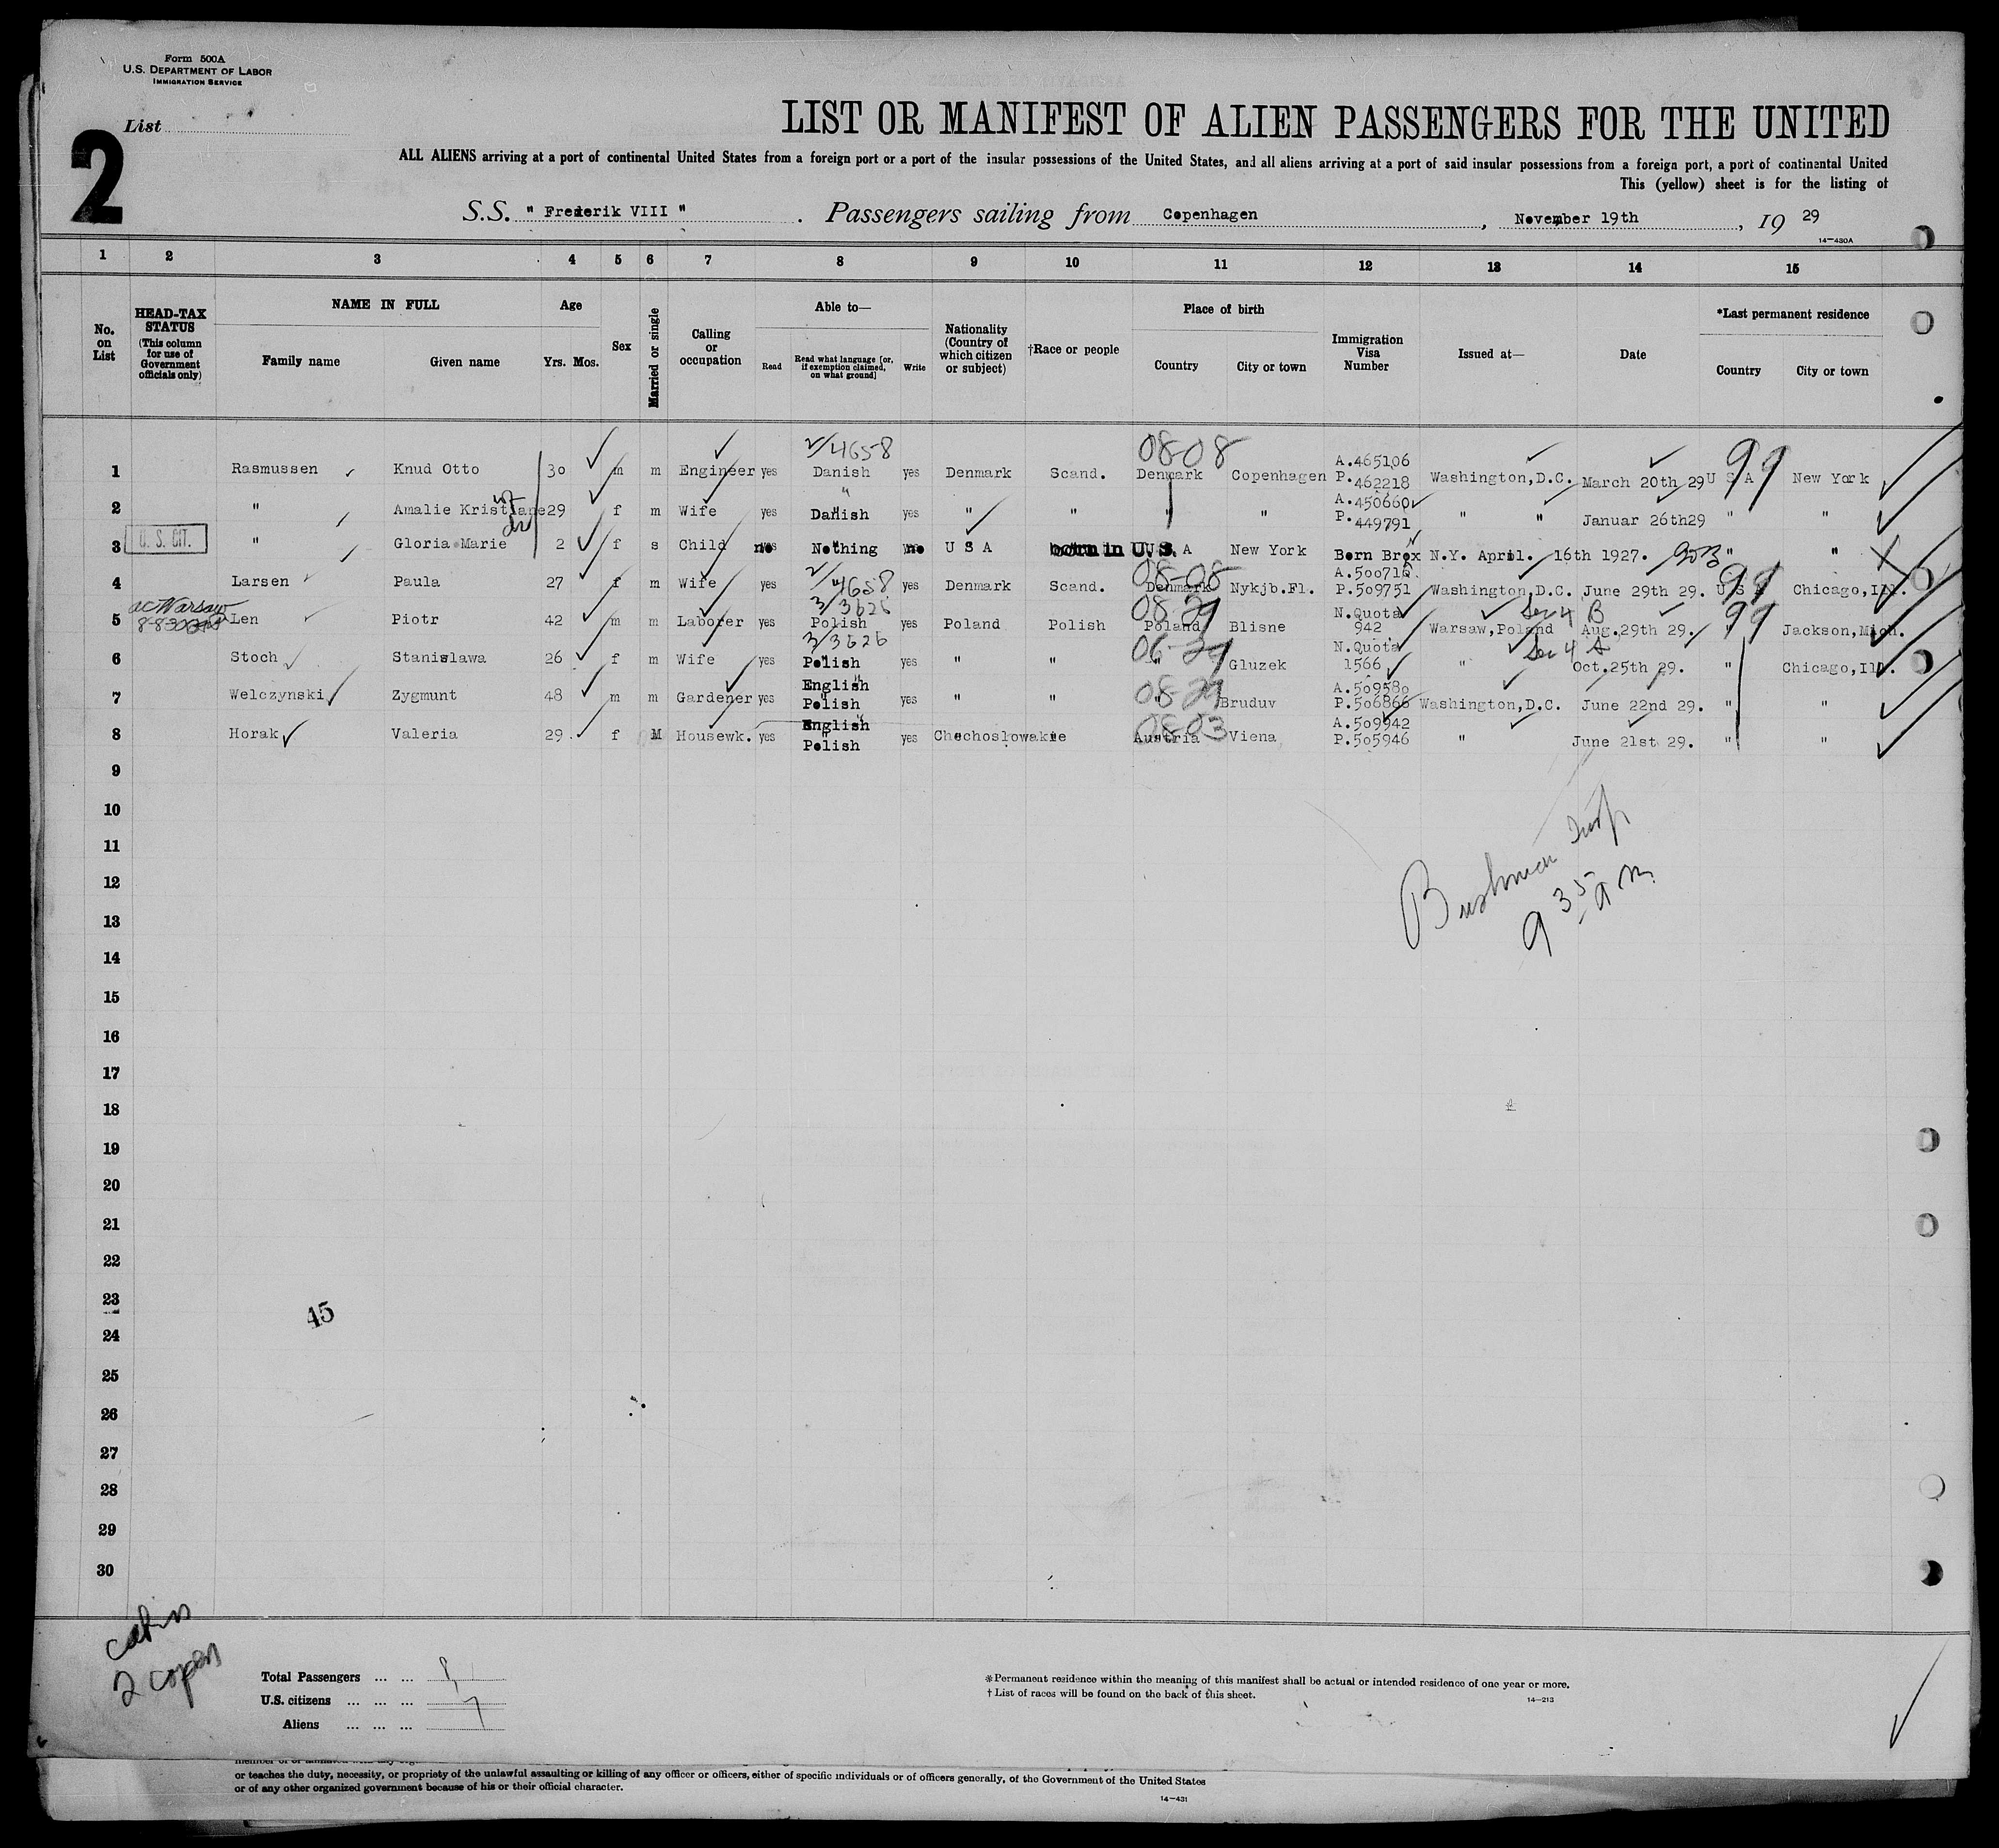 Form 500A
U.S. DEPARTMENT OF LABOR
IMMIGRATION SERVICE
List
2
LIST OR MANIFEST OF ALIEN PASSENGERS FOR THE UNITED
ALL ALIENS arriving at a port of continental United States from a foreign port or a port of the insular possessions of the United States, and all aliens arriving at a port of said insular possessions from a foreign port, a port of continental United
This (yellow) sheet is for the listing of
S.S. " Frederik VIII " . Passengers sailing from Copenhagen , November 19th , 19 29
14—430A
1 2 3 4 5 6 7 8 9 10 11 12 13 14 15
No. on List
HEAD-TAX STATUS (This column for use of Government officials only)
NAME IN FULL
Family name Given name
Age
Yrs. Mos.
Sex
Married or single
Calling or occupation
Able to—
Read Read what language [or, if exemption claimed, on what ground] Write
Nationality (Country of which citizen or subject)
†Race or people
Place of birth
Country City or town
Immigration Visa Number
Issued at—
Date
*Last permanent residence
Country City or town
2/4658 08-08 99
1 Rasmussen Knud Otto 30 m m Engineer yes Danish yes Denmark Scand. Denmark Copenhagen A.465106 P.462218 Washington,D.C. March 20th 29 U S A New York
2 " Amalie Kristiane 29 f m Wife yes " Danish yes " " " " A.450660 P.449791 " " Januar 26th29 " "
3 U. S. CIT. " Gloria Marie 2 f s Child no Nothing no U S A born in U.S. U S A New York Born Brox N.Y. April. 16th 1927. " "
2/4658 08-08 99
4 Larsen Paula 27 f m Wife yes yes Denmark Scand. Denmark Nykjb.Fl. A.500716 P.509751 Washington,D.C. June 29th 29. U S A Chicago,Ill.
ac Warsaw 3/3626 08-29 Sec 4 B 99
5 Len Piotr 42 m m Laborer yes Polish yes Poland Polish Poland Blisne N.Quota 942 Warsaw,Poland Aug.29th 29. " Jackson,Mich.
3/3626 06-29 Sec 4 A
6 Stoch Stanislawa 26 f m Wife yes Polish yes " " " Gluzek N.Quota 1566 " Oct.25th 29. " Chicago,Ill.
08-29
7 Welczynski Zygmunt 48 m m Gardener yes English Polish yes " " " Bruduv A.509580 P.506866 Washington,D.C. June 22nd 29. " "
08-03
8 Horak Valeria 29 f M Housewk. yes English Polish yes Chechoslowakie Austria Viena A.509942 P.505946 " June 21st 29. " "
9
10
11
12
13
14
15
16
17
18
19
20
21
22
23
24
25
26
27
28
29
30
Bushman Insp
9 35 a m
45
cabin
2 copen
Total Passengers ... ... 8
U.S. citizens ... ... ... 1
Aliens ... ... ... 7
*Permanent residence within the meaning of this manifest shall be actual or intended residence of one year or more.
† List of races will be found on the back of this sheet.
14—213
or teaches the duty, necessity, or propriety of the unlawful assaulting or killing of any officer or officers, either of specific individuals or of officers generally, of the Government of the United States
or of any other organized government because of his or their official character.
14—431